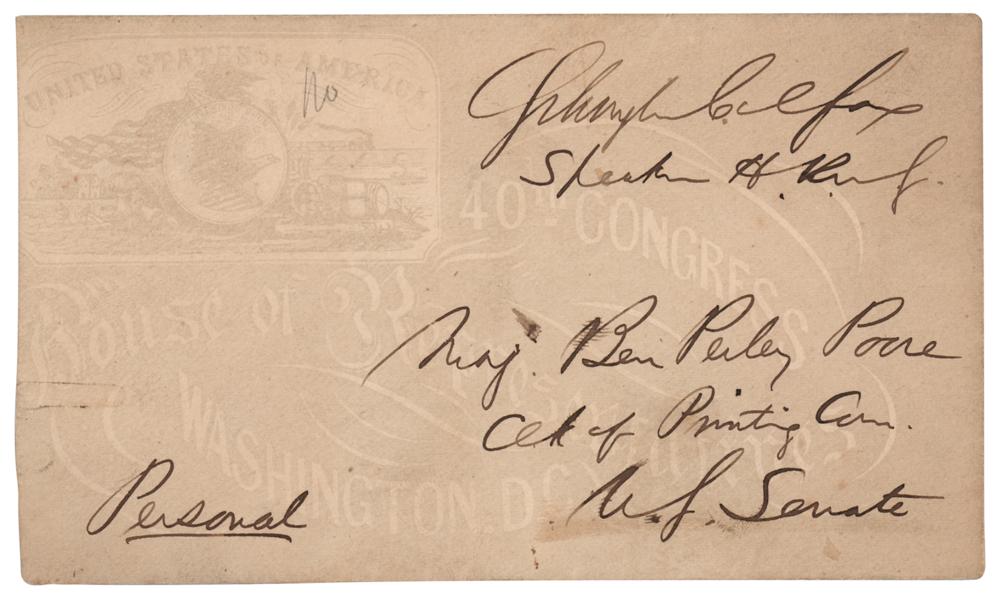 UNITED STATES OF AMERICA
No
Schuyler Colfax
Speaker H. Reps.
40TH CONGRESS
House of Representatives
WASHINGTON, D.C.
Maj. Ben Perley Poore
Clk of Printing Com.
U.S. Senate
Personal